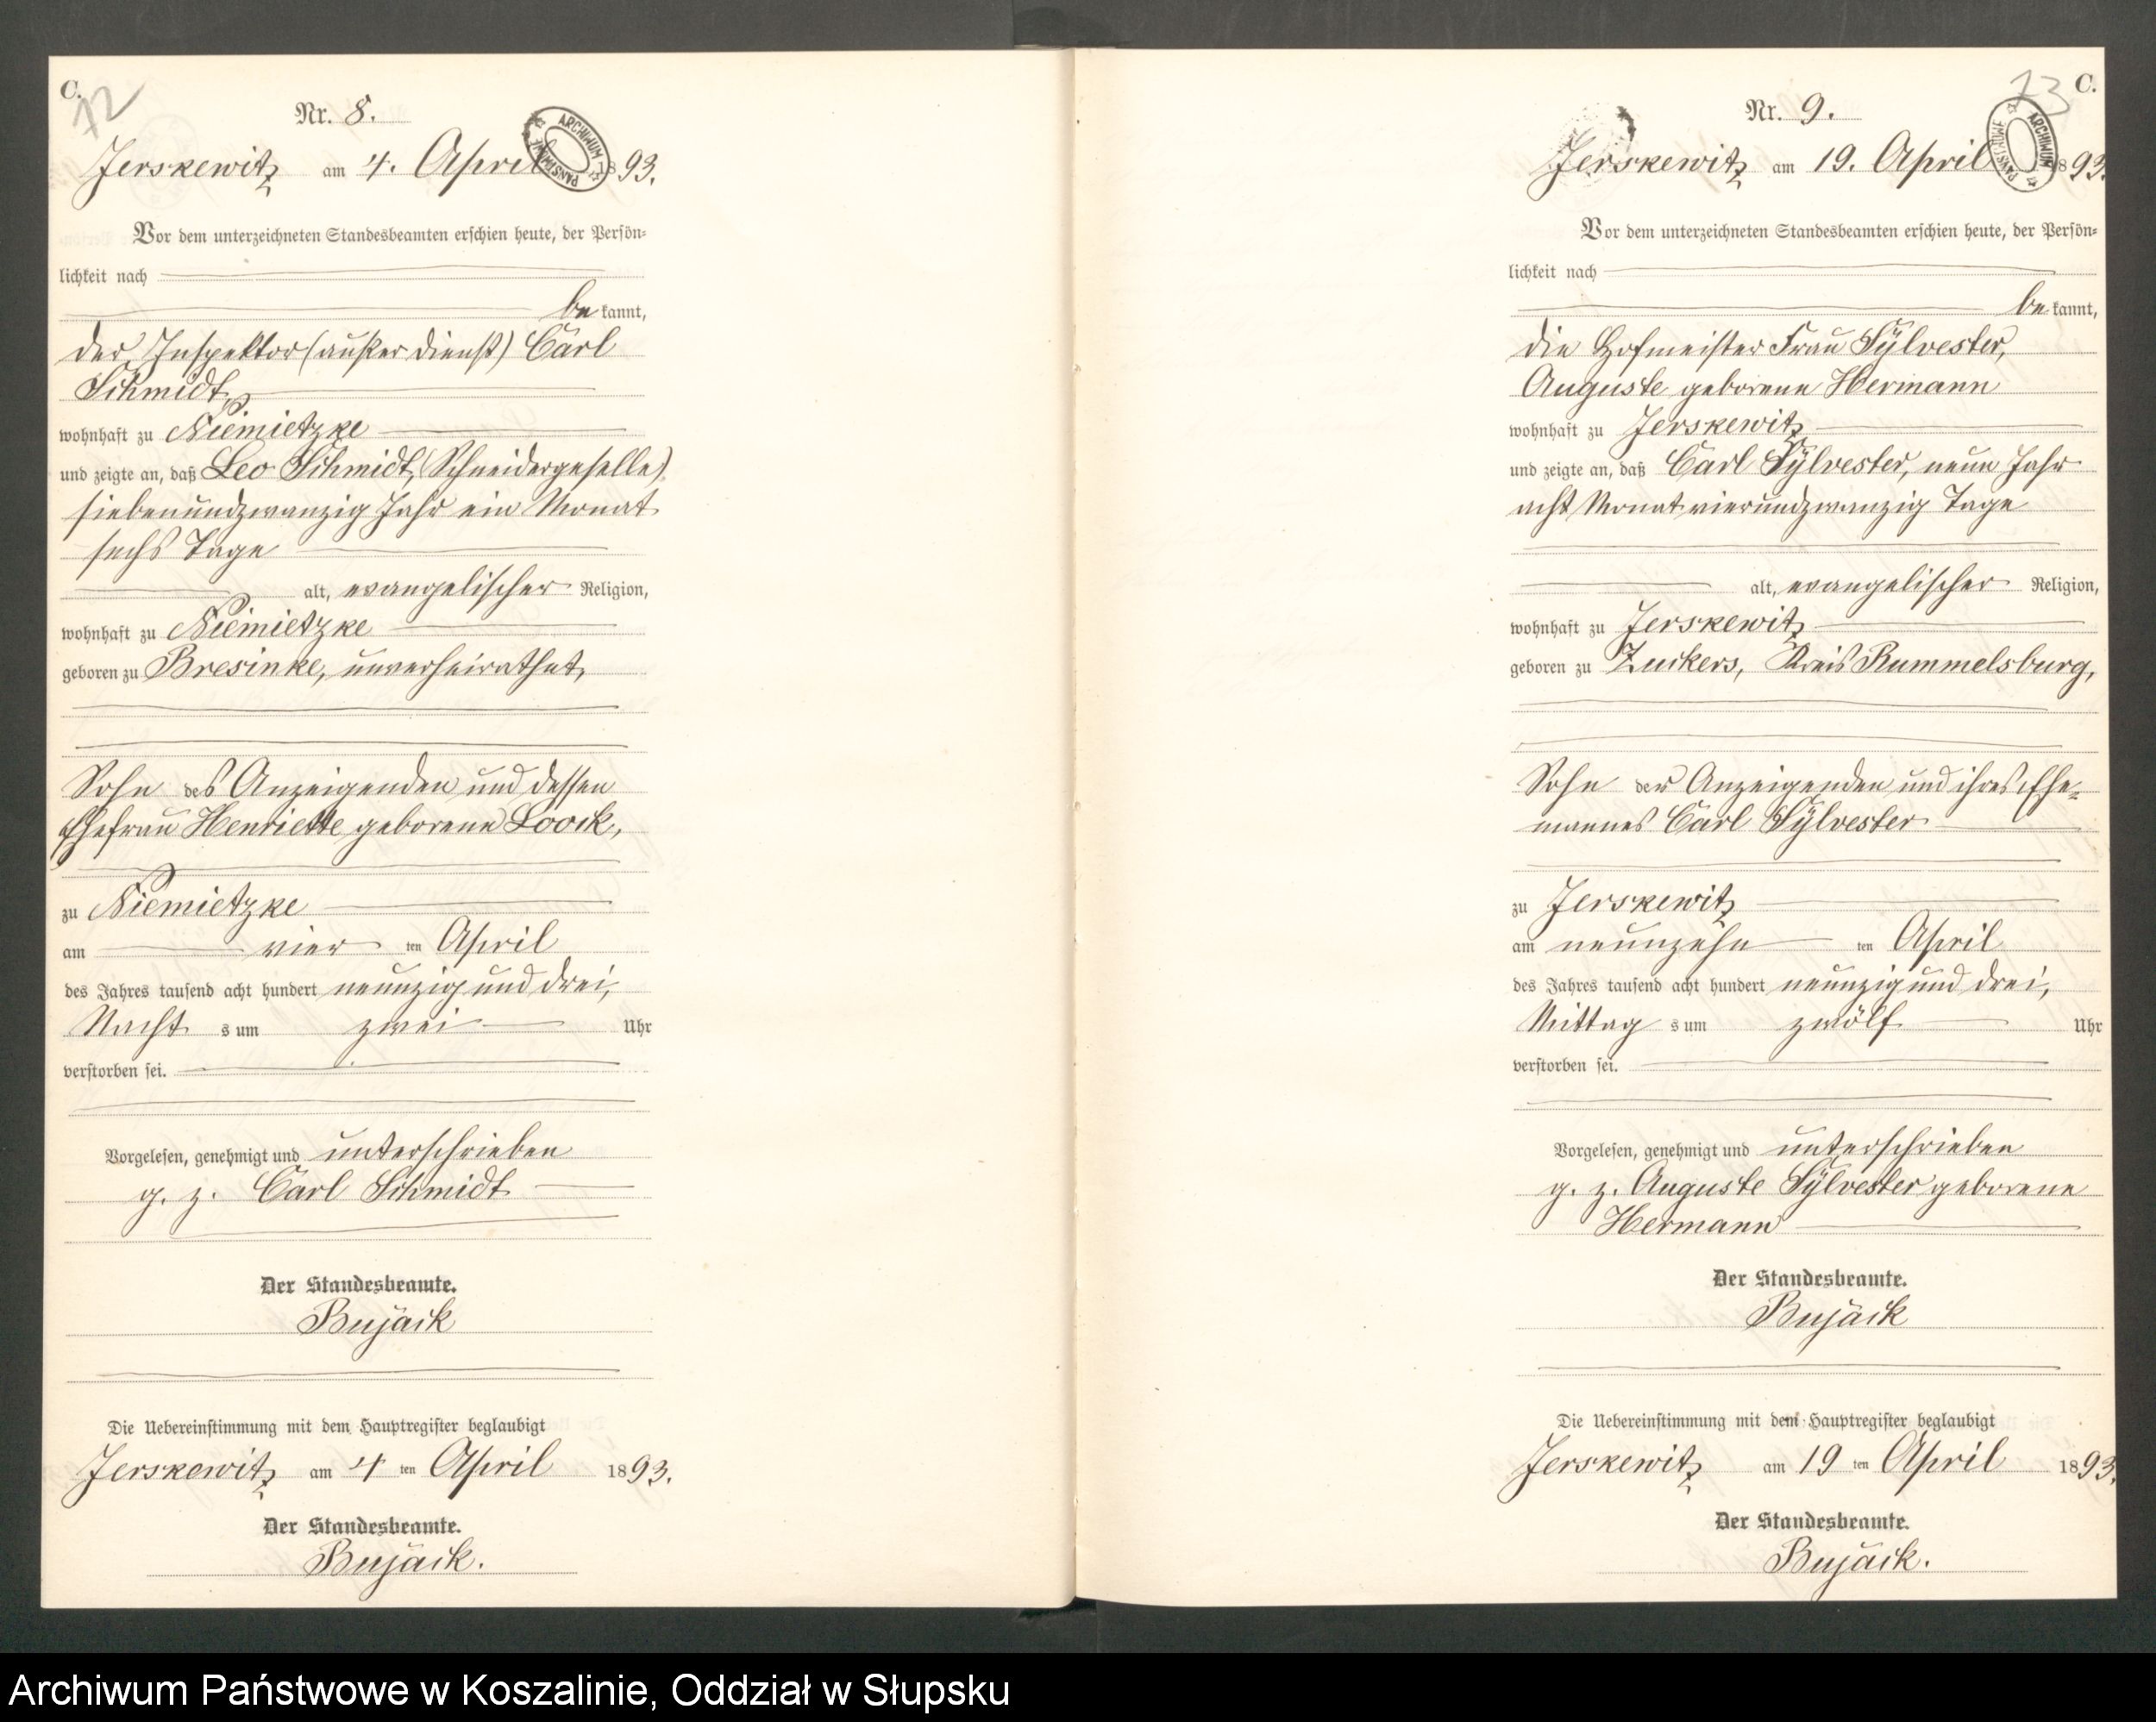 C.
72
Nr. 8.
Jerskewitz am 4. April 1893.
ARCHIWUM PAŃSTWOWE
Vor dem unterzeichneten Standesbeamten erschien heute, der Persön-
lichkeit nach
bekannt,
der Inspektor (außer Dienst) Carl
Schmidt,
wohnhaft zu Niemietzke
und zeigte an, daß Leo Schmidt, (Schneidergeselle)
siebenundzwanzig Jahr ein Monat
sechs Tage
alt, evangelischer Religion,
wohnhaft zu Niemietzke
geboren zu Bresinke, unverheirathet,
Sohn des Anzeigenden und dessen
Ehefrau Henriette geborene Loock,
zu Niemietzke
am vier ten April
des Jahres tausend acht hundert neunzig und drei,
Nacht s um zwei Uhr
verstorben sei.
Vorgelesen, genehmigt und unterschrieben
g. z. Carl Schmidt
Der Standesbeamte.
Bujack
Die Uebereinstimmung mit dem Hauptregister beglaubigt
Jerskewitz am 4 ten April 1893.
Der Standesbeamte.
Bujack.
C.
73
Nr. 9.
Jerskewitz am 19. April 1893.
ARCHIWUM PAŃSTWOWE
Vor dem unterzeichneten Standesbeamten erschien heute, der Persön-
lichkeit nach
bekannt,
die Hofmeister Frau Sylvester,
Auguste geborene Hermann
wohnhaft zu Jerskewitz
und zeigte an, daß Carl Sylvester, neun Jahr
acht Monat vierundzwanzig Tage
alt, evangelischer Religion,
wohnhaft zu Jerskewitz
geboren zu Zuckers, Kreis Rummelsburg,
Sohn der Anzeigenden und ihres Ehe-
mannes Carl Sylvester
zu Jerskewitz
am neunzehn ten April
des Jahres tausend acht hundert neunzig und drei,
Mittag s um zwölf Uhr
verstorben sei.
Vorgelesen, genehmigt und unterschrieben
g. z. Auguste Sylvester geborene
Hermann
Der Standesbeamte.
Bujack
Die Uebereinstimmung mit dem Hauptregister beglaubigt
Jerskewitz am 19 ten April 1893.
Der Standesbeamte.
Bujack.
Archiwum Państwowe w Koszalinie, Oddział w Słupsku